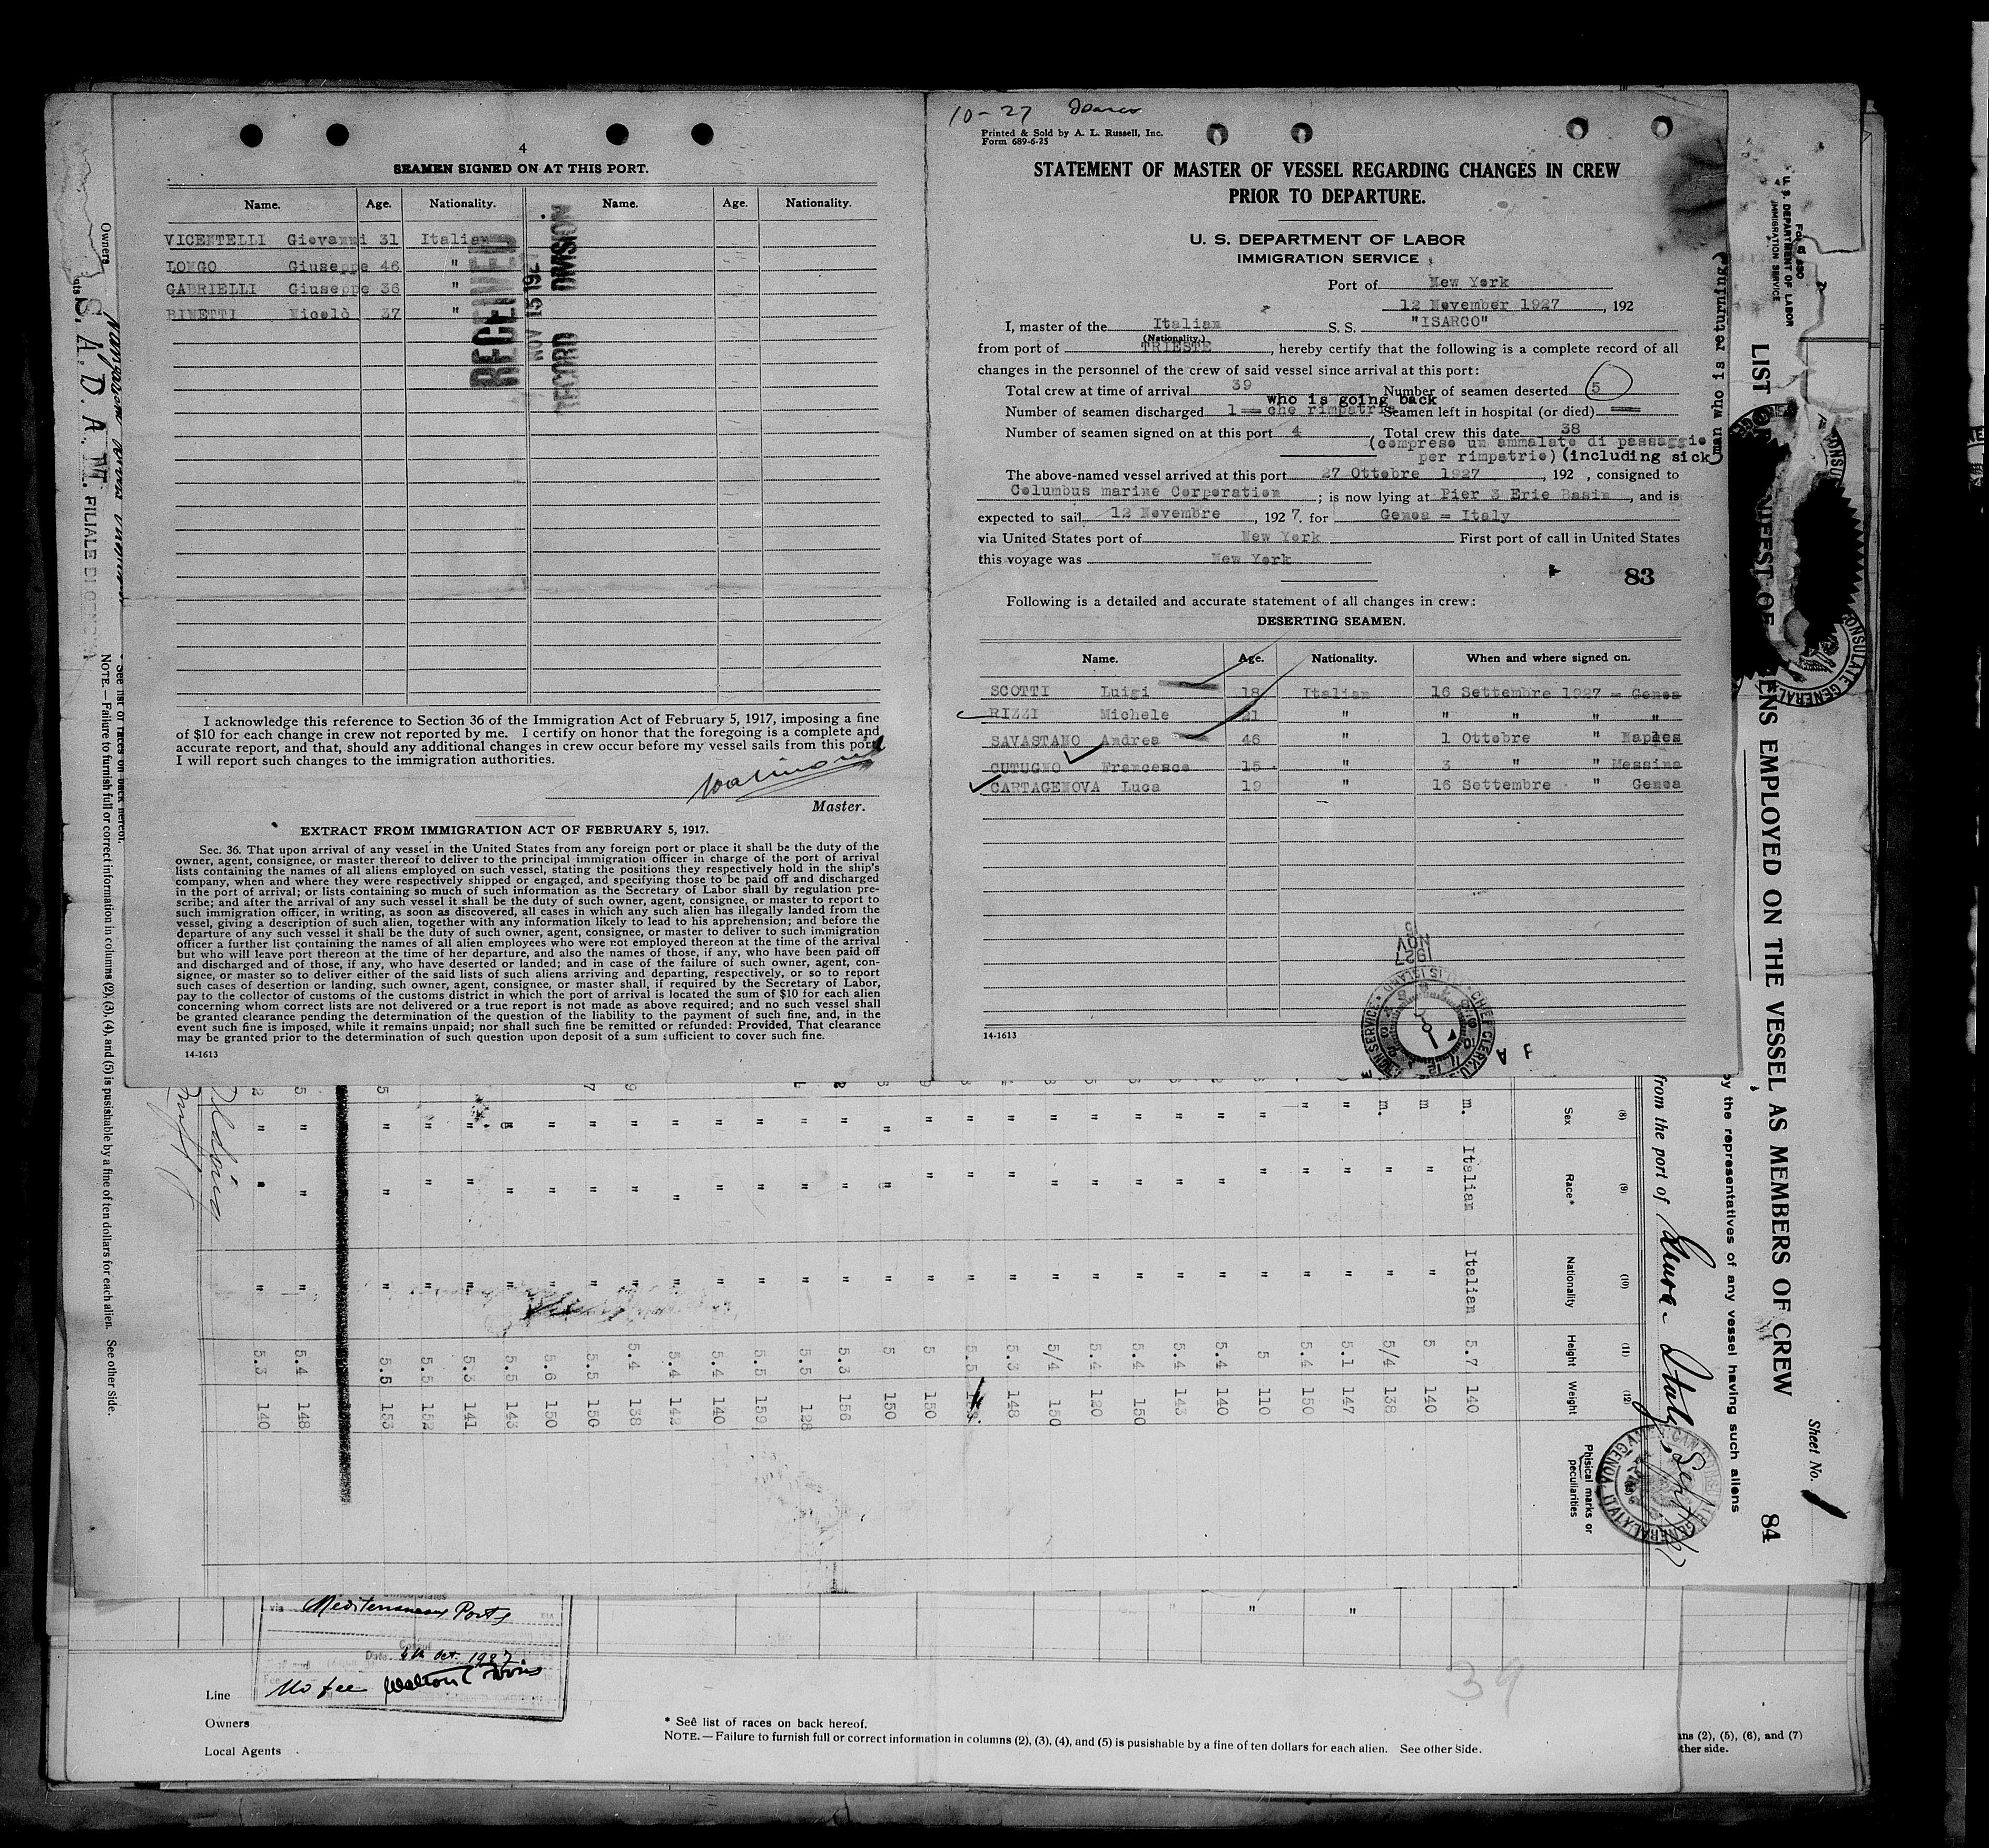 4
SEAMEN SIGNED ON AT THIS PORT.
Name. Age. Nationality. Name. Age. Nationality.
VICENTELLI Giovanni 31 Italian
LONGO Giuseppe 46 "
GABRIELLI Giuseppe 36 "
BINETTI Nicolò 37 "
RECEIVED
NOV 15 192
RECORD DIVISION
I acknowledge this reference to Section 36 of the Immigration Act of February 5, 1917, imposing a fine
of $10 for each change in crew not reported by me. I certify on honor that the foregoing is a complete and
accurate report, and that, should any additional changes in crew occur before my vessel sails from this port
I will report such changes to the immigration authorities.
Master.
EXTRACT FROM IMMIGRATION ACT OF FEBRUARY 5, 1917.
Sec. 36. That upon arrival of any vessel in the United States from any foreign port or place it shall be the duty of the
owner, agent, consignee, or master thereof to deliver to the principal immigration officer in charge of the port of arrival
lists containing the names of all aliens employed on such vessel, stating the positions they respectively hold in the ship's
company, when and where they were respectively shipped or engaged, and specifying those to be paid off and discharged
in the port of arrival; or lists containing so much of such information as the Secretary of Labor shall by regulation pre-
scribe; and after the arrival of any such vessel it shall be the duty of such owner, agent, consignee, or master to report to
such immigration officer, in writing, as soon as discovered, all cases in which any such alien has illegally landed from the
vessel, giving a description of such alien, together with any information likely to lead to his apprehension; and before the
departure of any such vessel it shall be the duty of such owner, agent, consignee, or master to deliver to such immigration
officer a further list containing the names of all alien employees who were not employed thereon at the time of the arrival
but who will leave port thereon at the time of her departure, and also the names of those, if any, who have been paid off
and discharged and of those, if any, who have deserted or landed; and in case of the failure of such owner, agent, con-
signee, or master so to deliver either of the said lists of such aliens arriving and departing, respectively, or so to report
such cases of desertion or landing, such owner, agent, consignee, or master shall, if required by the Secretary of Labor,
pay to the collector of customs of the customs district in which the port of arrival is located the sum of $10 for each alien
concerning whom correct lists are not delivered or a true report is not made as above required; and no such vessel shall
be granted clearance pending the determination of the question of the liability to the payment of such fine, and, in the
event such fine is imposed, while it remains unpaid; nor shall such fine be remitted or refunded: Provided, That clearance
may be granted prior to the determination of such question upon deposit of a sum sufficient to cover such fine.
14-1613
10-27 Isarco
Printed & Sold by A. L. Russell, Inc.
Form 689-6-25
STATEMENT OF MASTER OF VESSEL REGARDING CHANGES IN CREW
PRIOR TO DEPARTURE.
U. S. DEPARTMENT OF LABOR
IMMIGRATION SERVICE
Port of New York
12 November 1927, 192
I, master of the Italian S. S. "ISARCO"
(Nationality.)
from port of TRIESTE, hereby certify that the following is a complete record of all
changes in the personnel of the crew of said vessel since arrival at this port:
Total crew at time of arrival 39 Number of seamen deserted 5
who is going back
Number of seamen discharged 1 = che rimpatria Seamen left in hospital (or died)
Number of seamen signed on at this port 4 Total crew this date 38
(compreso un ammalato di passaggio
per rimpatrio) (including sick
man who is returning)
The above-named vessel arrived at this port 27 Ottobre 1927, 192 , consigned to
Columbus marine Corporation ; is now lying at Pier 3 Erie Basin, and is
expected to sail 12 Novembre, 1927. for Genoa = Italy
via United States port of New York First port of call in United States
this voyage was New York
83
Following is a detailed and accurate statement of all changes in crew:
DESERTING SEAMEN.
Name. Age. Nationality. When and where signed on.
SCOTTI Luigi 18 Italian 16 Settembre 1927 = Genoa
RIZZI Michele 21 " " " " "
SAVASTANO Andrea 46 " 1 Ottobre " Naples
CUTUGNO Francesco 15 " 3 " " Messina
CARTAGENOVA Luca 19 " 16 Settembre " Genoa
1927
NOV
15
14-1613
U. S. DEPARTMENT OF LABOR
IMMIGRATION SERVICE
LIST OR MANIFEST OF ALIENS EMPLOYED ON THE VESSEL AS MEMBERS OF CREW
Sheet No. 1
84
by the representatives of any vessel having such aliens
from the port of Genoa Italy, Sept
(8) (9) (10) (11) (12)
Sex Race* Nationality Height Weight Phisical marks or peculiarities
m. Italian Italian 5.7 140
m " " 5 140
m. " " 5/4 138
" " " 5.1 147
" " " 5.4 150
" " " 5 110
" " " 5.4 140
" " " 5.4 143
" " " 5.4 150
" " " 5.4 120
" " " 5/4 150
" " " 5.3 148
" " " 5.5
" " " 5 150
" " " 5 150
" " " 5.3 156
" " " 5.5 128
" " " 5.5 159
" " " 5.4 140
" " " 5.4 142
" " " 5.4 138
" " " 5.5 150
" " " 5.6 150
" " " 5.5 143
" " " 5.3 141
" " " 5.5 152
" " " 5.5 153
" " " 5.4 148
" " " 5.3 140
Owners
S. A. D. A. M. FILIALE DI GENOVA
* See list of races on back hereof.
NOTE.—Failure to furnish full or correct information in columns (2), (3), (4), and (5) is pusishable by a fine of ten dollars for each alien. See other Side.
via Mediterranean Ports
Date 4th Oct. 1927
No fee
39
Line
Owners
Local Agents
* See list of races on back hereof.
NOTE.—Failure to furnish full or correct information in columns (2), (3), (4), and (5) is pusishable by a fine of ten dollars for each alien. See other Side.
ns (2), (5), (6), and (7)
ther side.